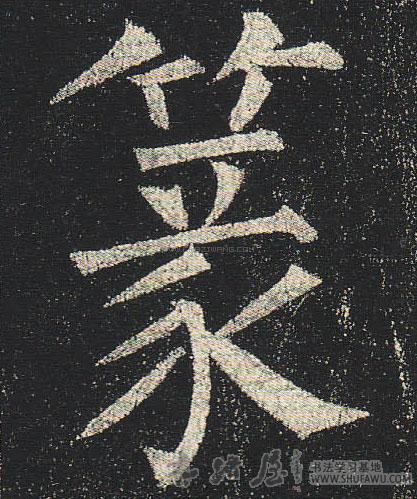 篆
书法学习基地
WWW.SHUFAWU.COM